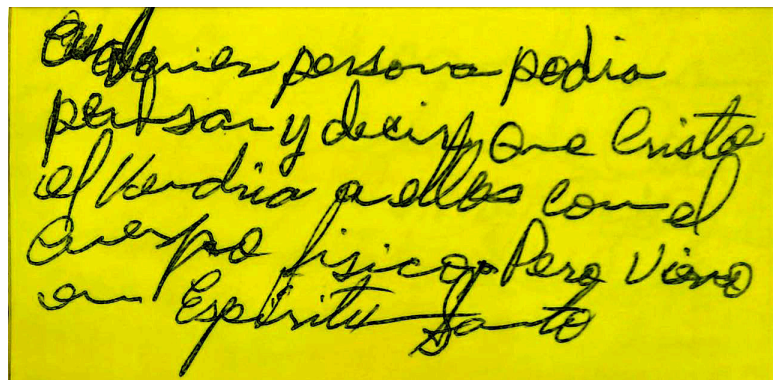 Cualquier persona podia
pensar y decir, que Cristo
el Vendria a ellos con el
Cuerpo fisico, Pero Vieno
en Espiritu Santo